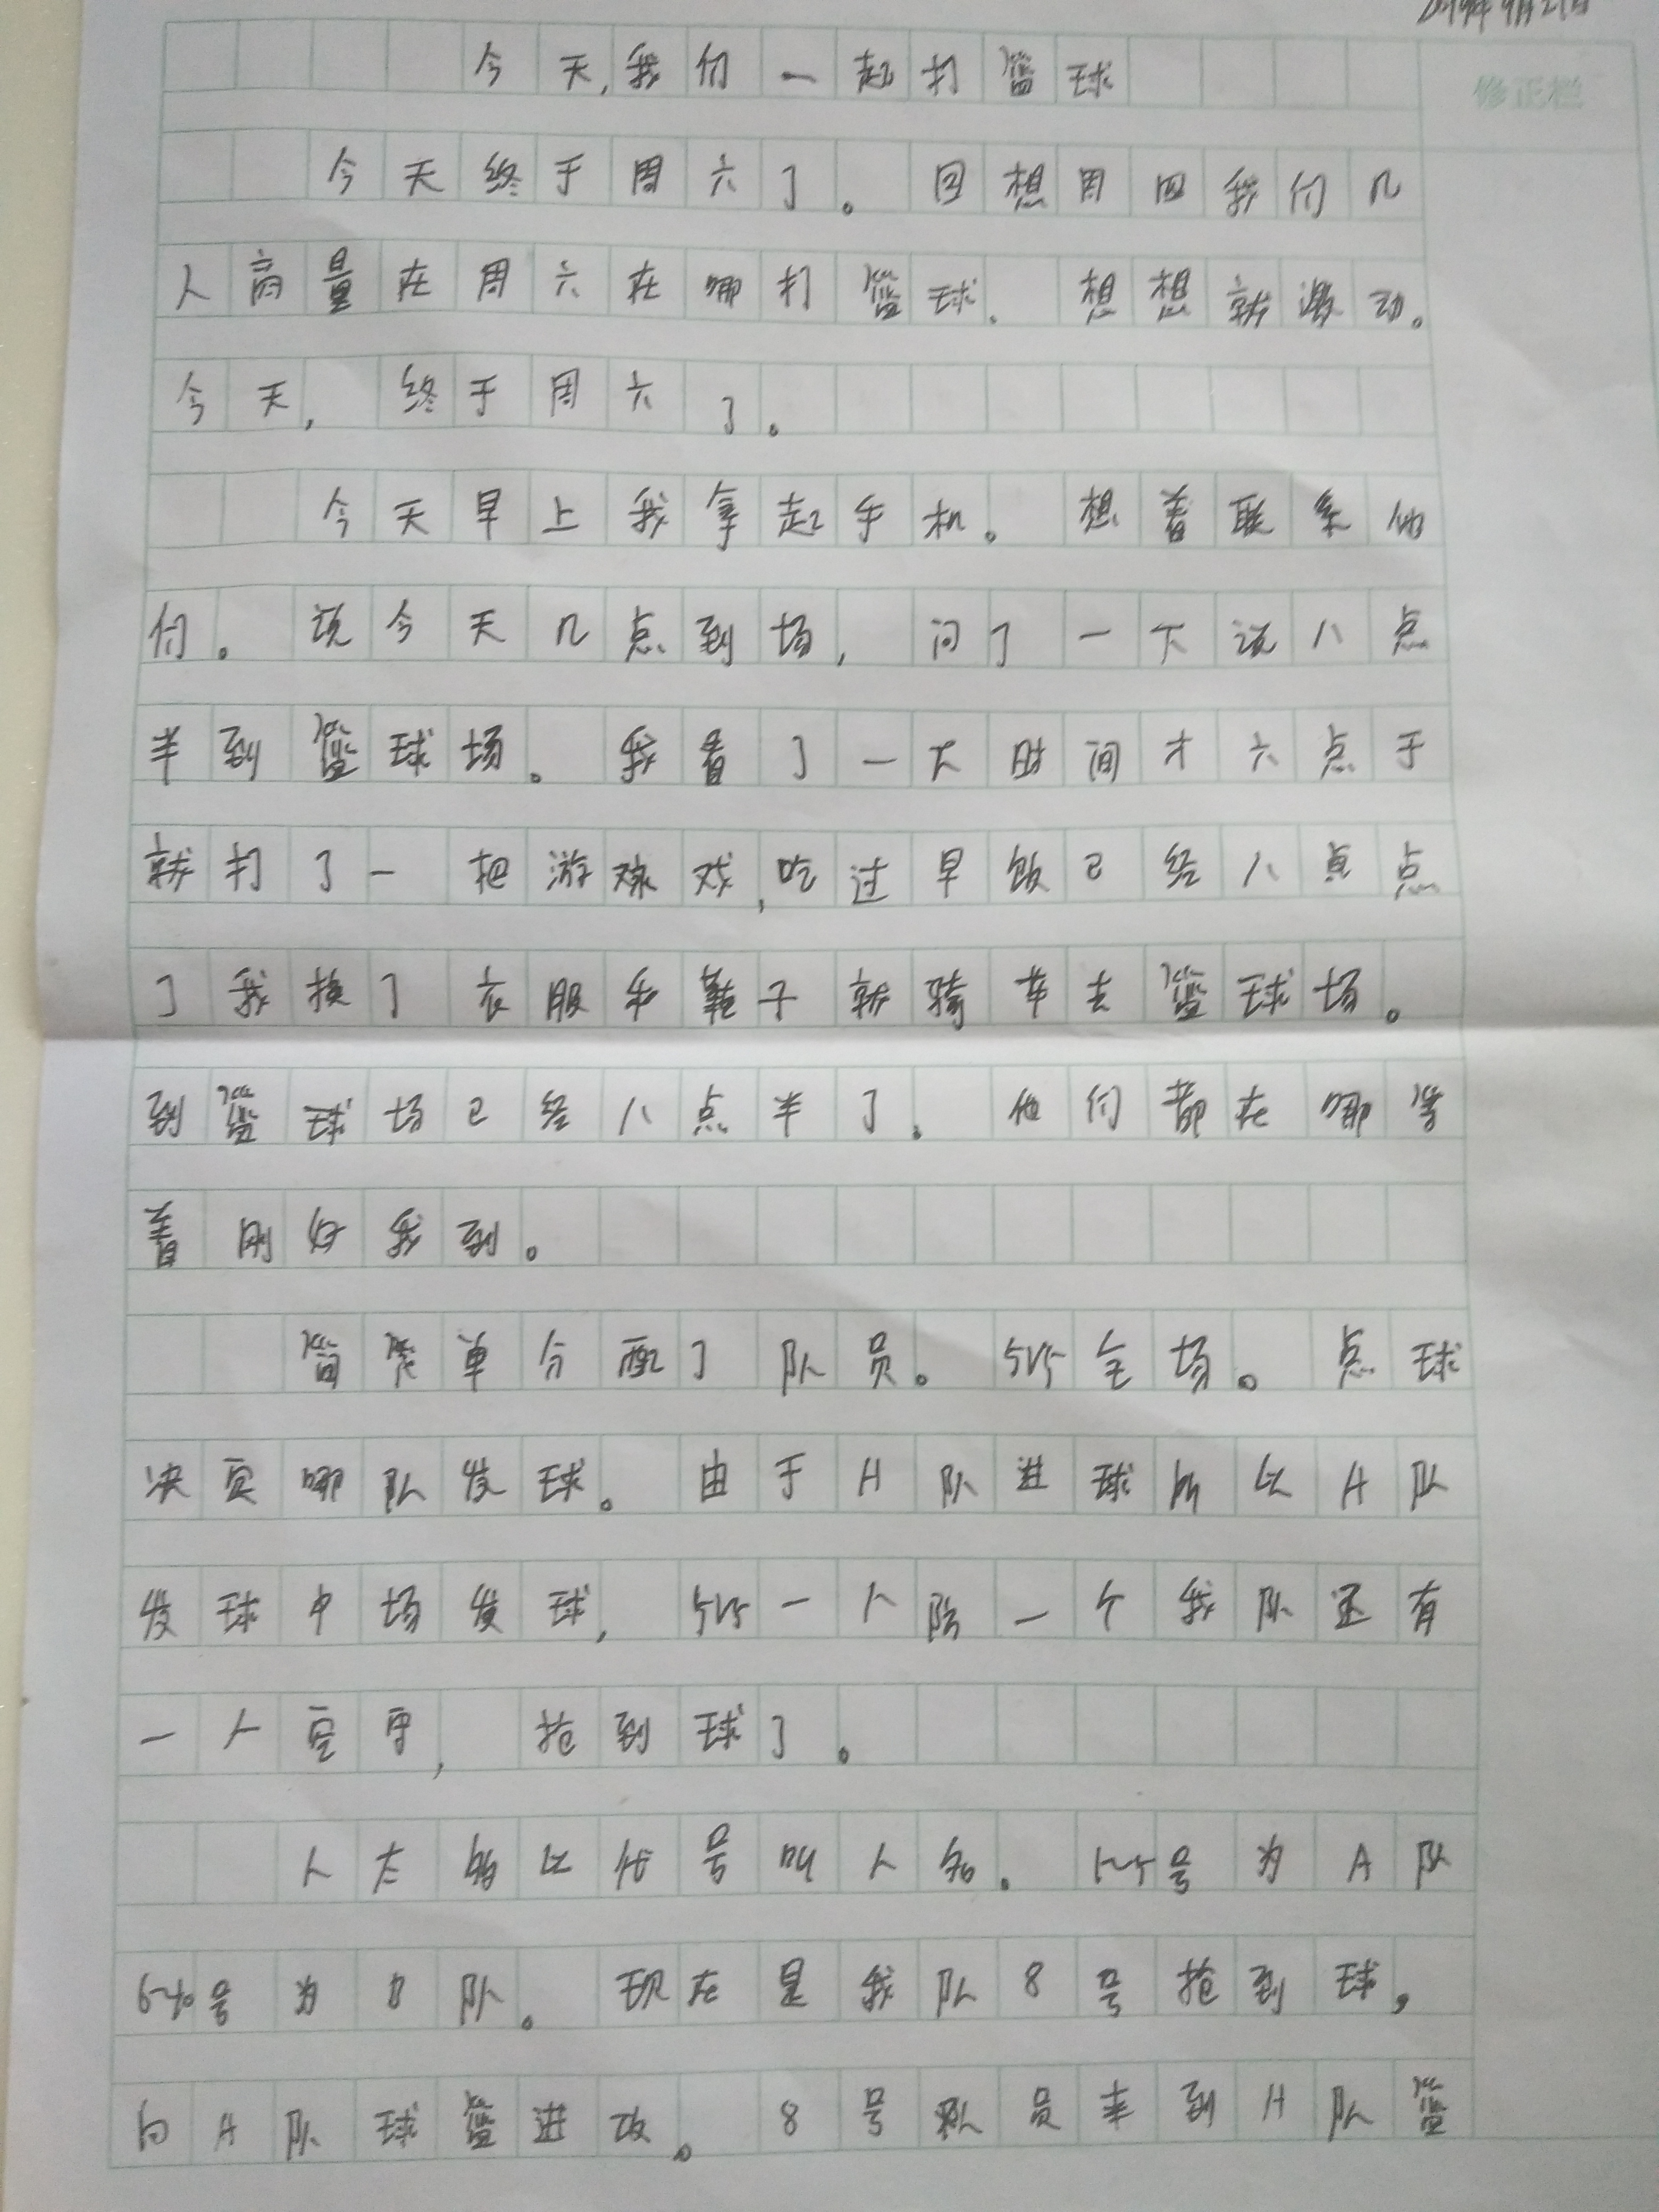 2019年9月21日
今天,我们一起打篮球
修正栏
今天终于周六了。回想周四我们几
人商量在周六在哪打篮球.想想就激动。
今天,终于周六了。
今天早上我拿起手机。想着联系他
们。说今天几点到场,问了一下说八点
半到篮球场。我看了一下时间才六点于
就打了一把游戏戏,吃过早饭已经八点点
了我换了衣服和鞋子就骑车去篮球场。
到篮球场已经八点半了.他们都在哪等
着刚好我到。
简单分配了队员。5V5全场。点球
决定哪队发球。由于A队进球所以A队
发球中场发球,5V5一人防一个我队还有
一人空守,抢到球了。
人太多以代号叫人名.1~5号为A队
6~10号为B队。现在是我队8号抢到球,
向A队球篮进攻。8号队员来到A队篮